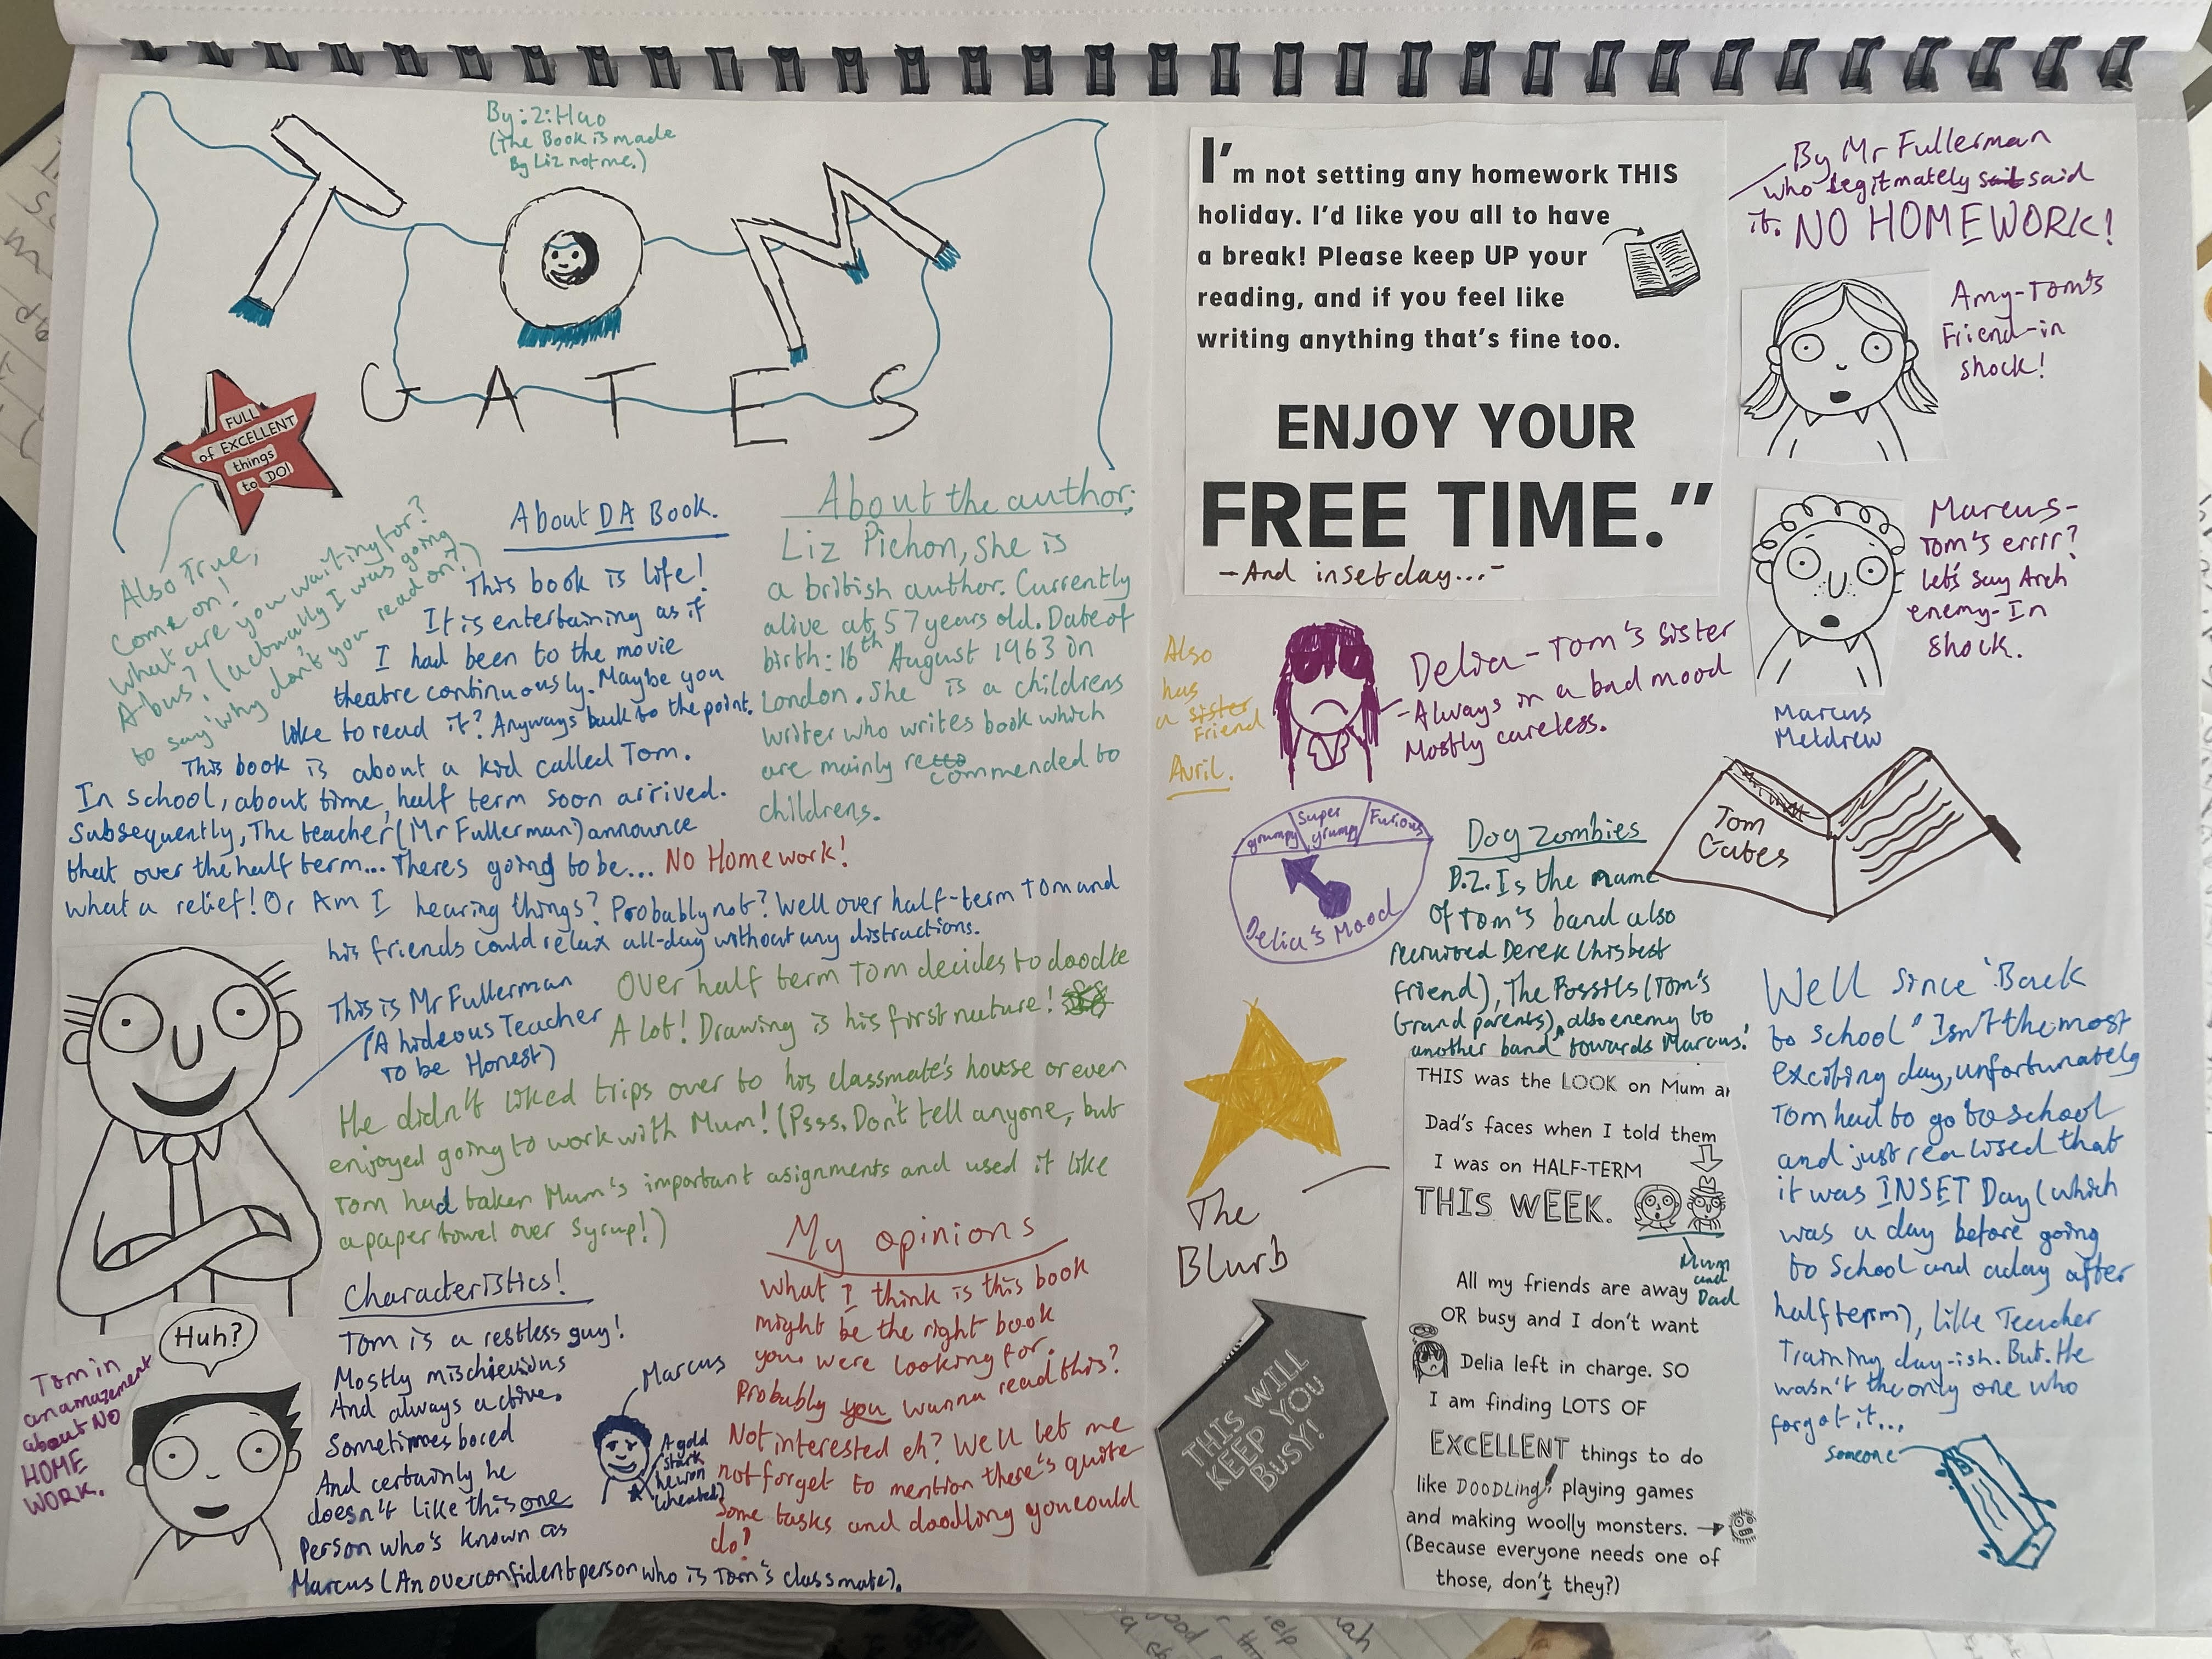 By: Zi Hao
(The Book is made
By Liz not me.)
TOM
GATES
FULL
of EXCELLENT
things
to DO!
Also True,
Come on!
What are you waiting for?
A bus? (actually I was going
to say 'why don't you read on?')
About DA Book.
This book is life!
It is entertaining as if
I had been to the movie
theatre continuously. Maybe you
like to read it? Anyways back to the point.
This book is about a kid called Tom.
In school, about time, half term soon arrived.
Subsequently, The teacher (Mr Fullerman) announce
that over the half term... Theres going to be... NO Homework!
what a relief! Or Am I hearing things? Probably not? Well over half-term Tom and
his friends could relax all-day without any distractions.
About the author:
Liz Pichon, she is
a british author. Currently
alive at 57 years old. Date of
birth: 16th August 1963 in
London. She is a childrens
writer who writes book which
are mainly recommended to
childrens.
This is Mr Fullerman
(A hideous Teacher
To be Honest)
Over half term Tom decides to doodle
A lot! Drawing is his first nature!
He didn't liked trips over to his classmate's house or even
enjoyed going to work with Mum! (Psss. Don't tell anyone, but
Tom had taken Mum's important asignments and used it like
a paper towel over Syrup!)
Huh?
Tom in
an amazement
about NO
HOME
WORK.
Characteristics!
Tom is a restless guy!
Mostly mischievious
And always active.
Sometimes bored
And certainly he
doesn't like this one
Person who's known as
Marcus (An overconfident person who is Tom's classmate).
Marcus
A gold
star
he won
(cheated)
My opinions
What I think is this book
might be the right book
you were looking for.
Probably you wanna read this?
Not interested eh? Well let me
not forget to mention there's quote
Some tasks and doodling you could
do?
I'm not setting any homework THIS
holiday. I'd like you all to have
a break! Please keep UP your
reading, and if you feel like
writing anything that's fine too.
ENJOY YOUR
FREE TIME."
-And inset day...-
By Mr Fullerman
who legitmately said
it. NO HOMEWORK!
Amy-Tom's
Friend-in
shock!
Marcus-
Tom's errrr?
let's say Arch
enemy-In
shock.
Marcus
Meldrew
Also
has
a sister
Friend
Avril.
Delia - Tom's sister
-Always in a bad mood
Mostly careless.
grumpy Super grumpy Furious
Delia's Mood
Tom
Gates
Dog Zombies
D.Z. Is the name
Of Tom's band also
recruited Derek (his best
friend), The Fossils (Tom's
Grand parents), also enemy to
another band towards Marcus!
The
Blurb
THIS WILL
KEEP YOU
BUSY!
THIS was the LOOK on Mum
Dad's faces when I told them
I was on HALF-TERM
THIS WEEK.
Mum
and
Dad
All my friends are away
OR busy and I don't want
Delia left in charge. SO
I am finding LOTS OF
EXCELLENT things to do
like DOODLing, playing games
and making woolly monsters.
(Because everyone needs one of
those, don't they?)
Well since 'Back
to school' Isn't the most
exciting day, unfortunately
Tom had to go to school
and just realised that
it was INSET Day (which
was a day before going
to School and a day after
half term), like Teacher
Training day-ish. But. He
wasn't the only one who
forgot it...
Someone